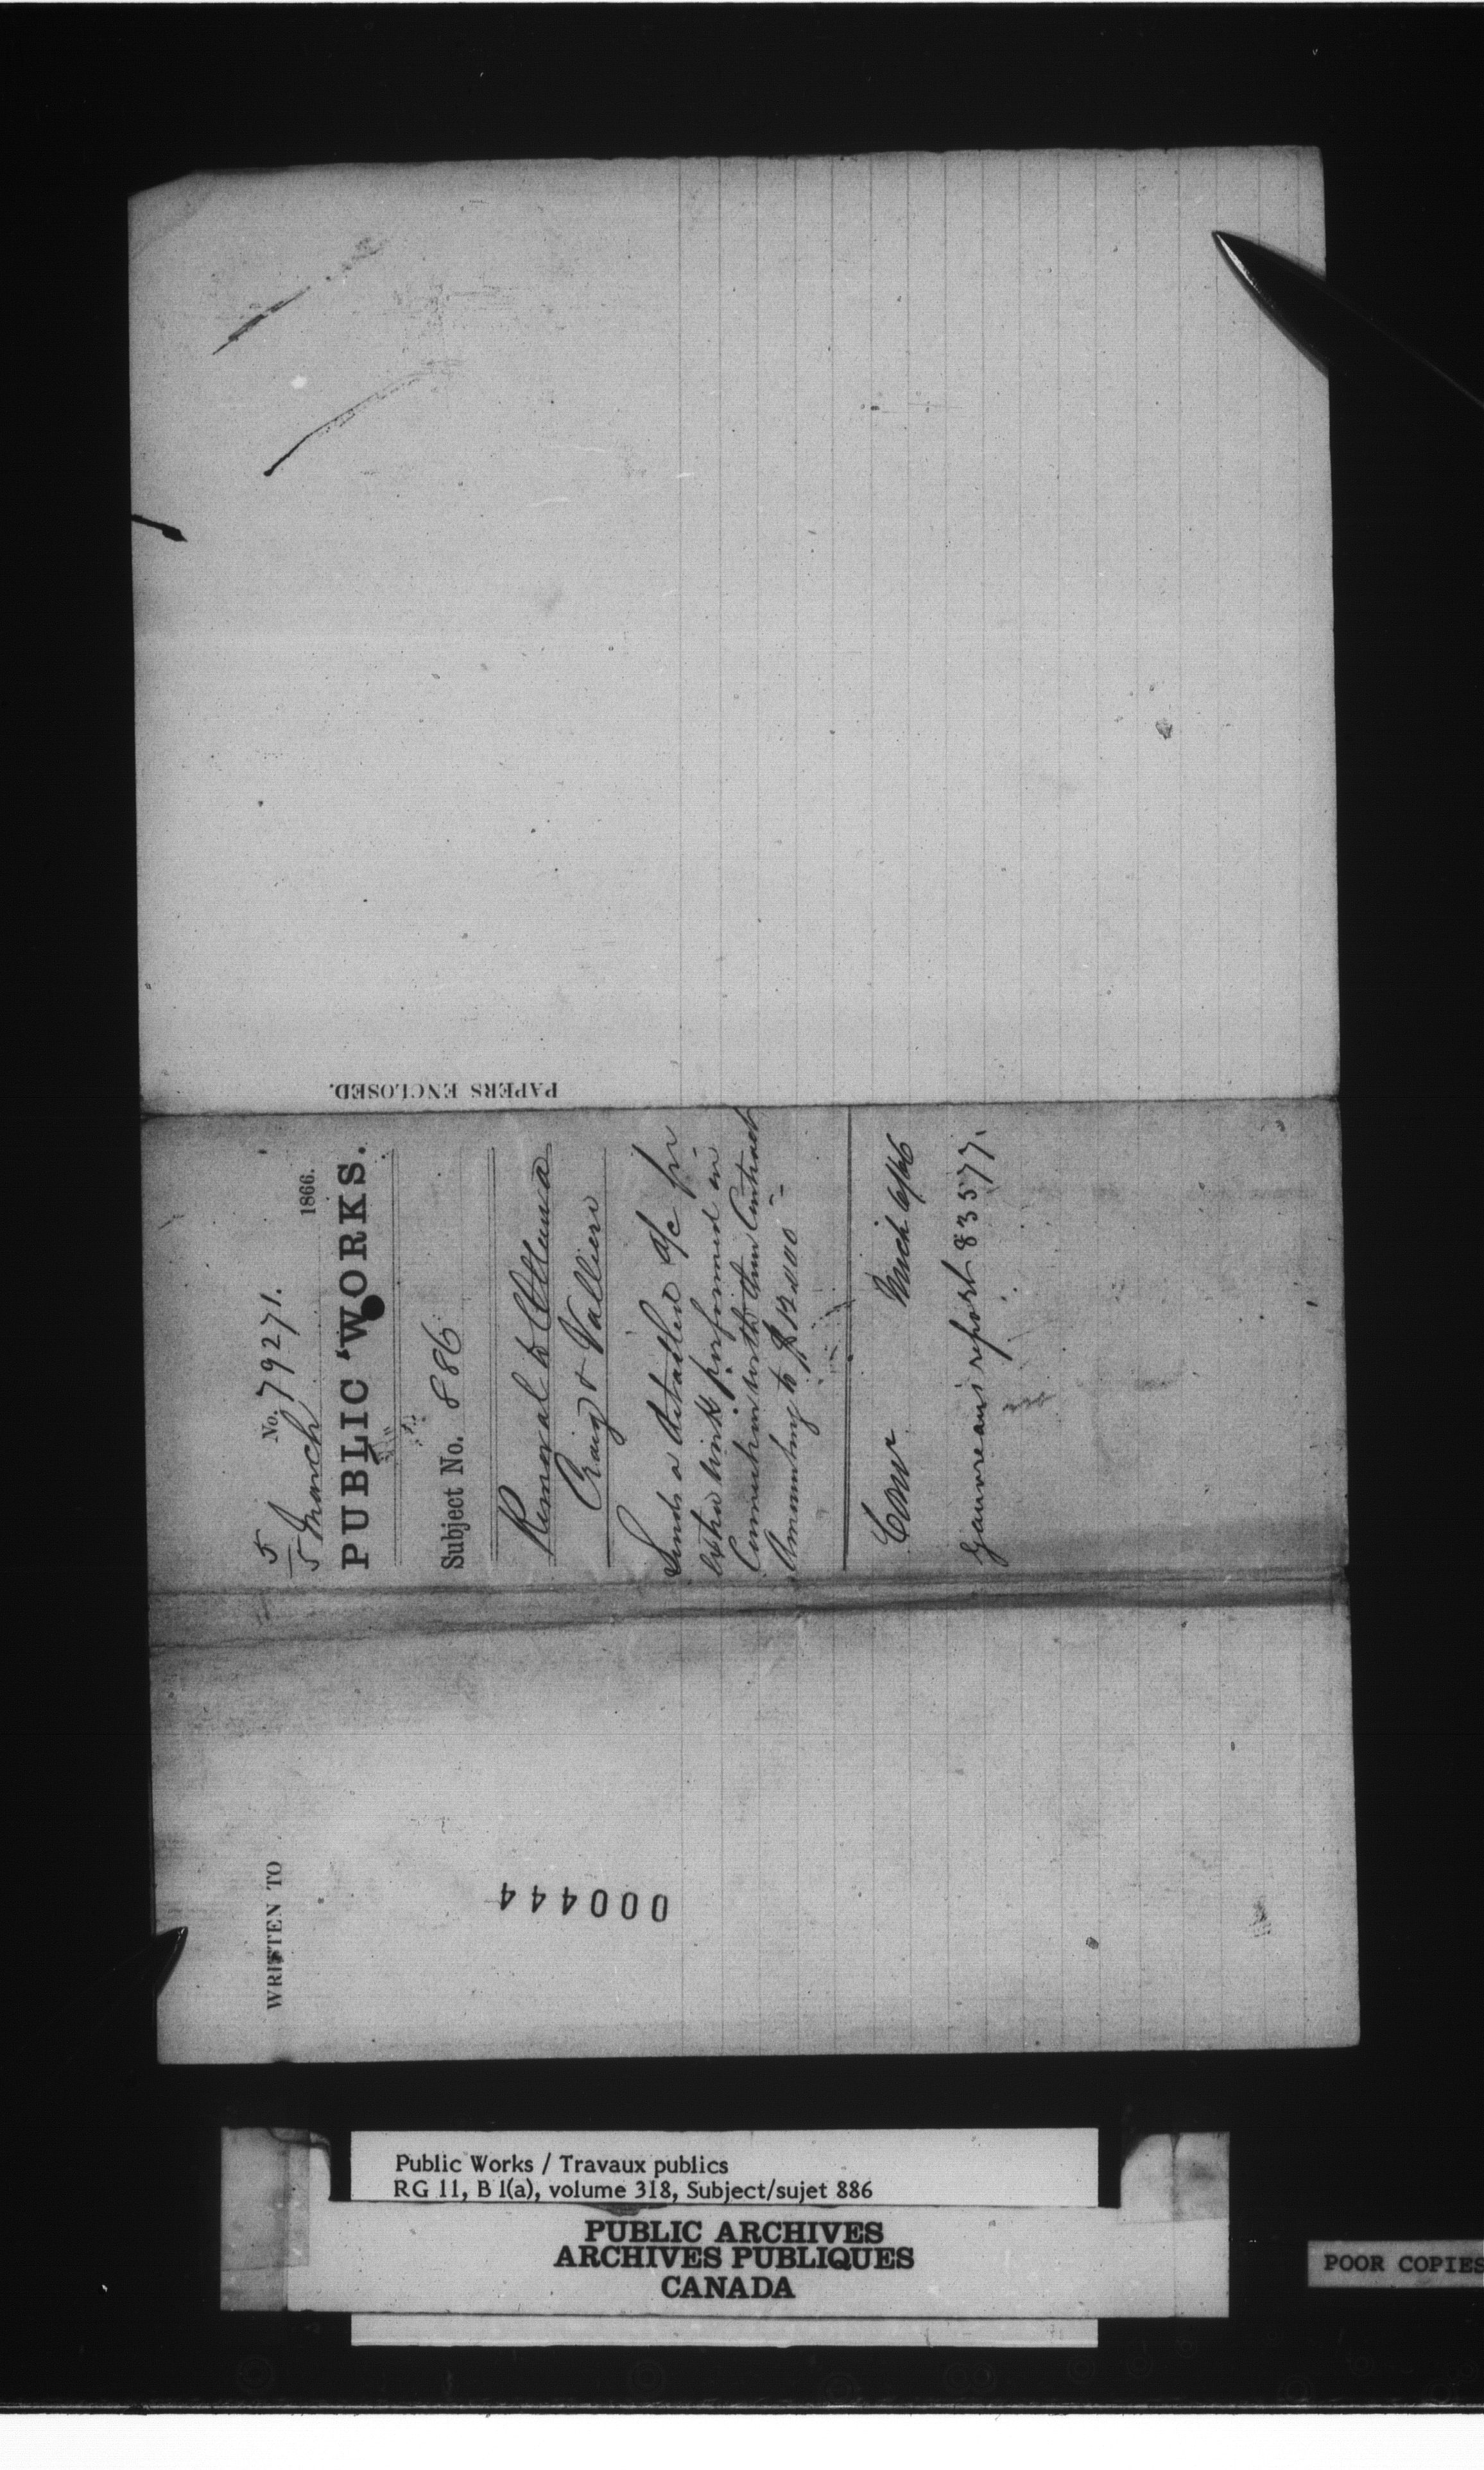 PAPERS ENCLOSED.
5/5
No. 79271.
March 1866.
PUBLIC WORKS.
Subject No. 886
Removal to Ottawa
Craig & Valliere
Sends a detailed a/c for
extra work performed in
Connection with their Contract
Amounting to $12000
Com March 6/66
Gauvreau's report 83577.
WRITTEN TO
000444
Public Works / Travaux publics
RG 11, B 1(a), volume 318, Subject/sujet 886
PUBLIC ARCHIVES
ARCHIVES PUBLIQUES
CANADA
POOR COPIES